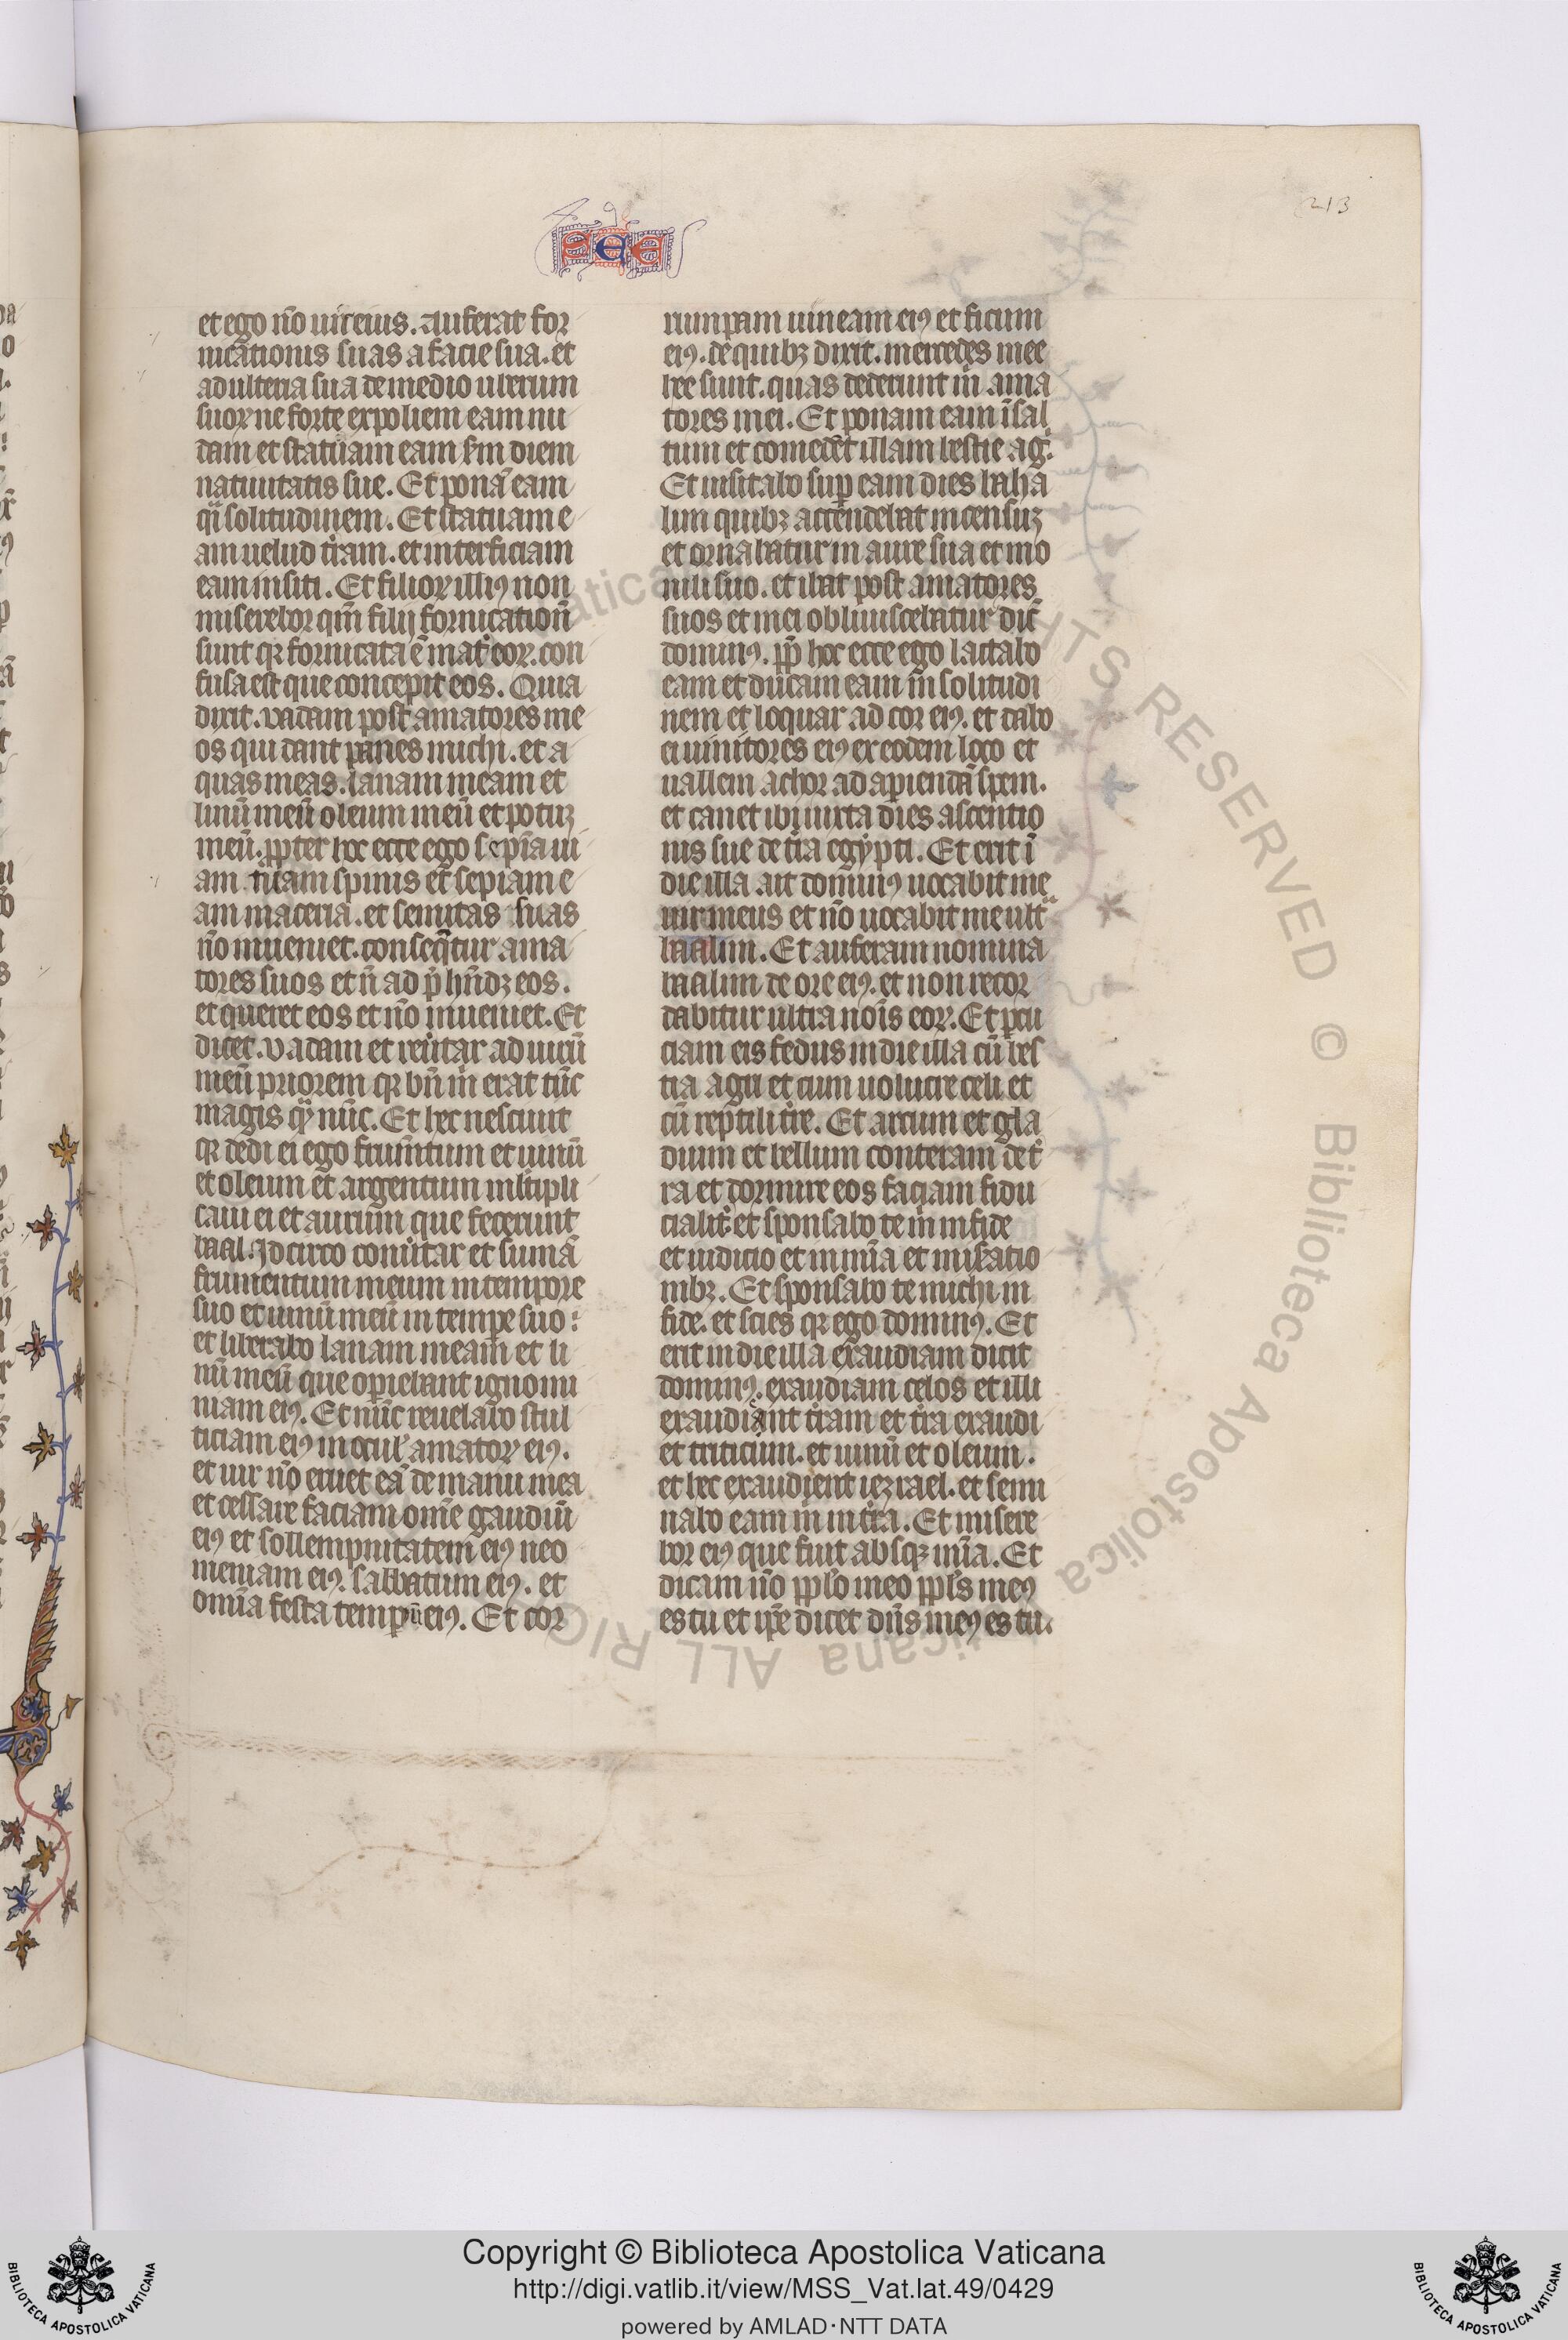 213
SEE
et ego nō uir eius. auferat for
nicationis suas a facie sua. et
adulteria sua de medio uberum
suoꝝ ne forte expoliem eam nu
dam et statuam eam scḋm diem
natiuitatis sue. Et ponā eam
qͣi solitudinem. Et statuam e
am uelud tr̄am. et interficiam
eam in siti. Et filioꝝ illiꝰ non
miserebor qm̄ filij fornication̄
sunt qꝛ fornicata ē mat̄ eoꝝ. con
fusa est que concepit eos. Quia
dixit. vadam post amatores me
os qui dant panes michi. et a
quas meas. lanam meam et
linū meū oleum meū et potuꝫ
meū. ꝓpter hoc ecce ego sepiā ui
am tuam spinis et sepiam e
am maceria. et semitas suas
nō inueniet. conseq̄tur ama
tores suos et n̄ ad p̄hn̄dꝫ eos.
et queret eos et nō inueniet. Et
dicet. vadam et reuītar ad uirū
meū priorem qꝛ bn̄ m̄ erat tūc
magis qͣ nūc. Et hec nesciuit
qꝛ dedi ei ego frum̄tum et uinū
et oleum et argentum ml̄tipli
caui ei et aurum que fecerunt
baal. Idcirco conuītar et sumā
frumentum meum in tempore
suo et uinū meū in tempe suo:
et liberabo lanam meam et li
nū meū que opiebant ignomi
niam eiꝰ. Et nūc reuelabo stul
ticiam eiꝰ in ocul̄ amatoꝝ eiꝰ.
et uir nō eruet eā de manu mea
et cessare faciam om̄e gaudiū
eiꝰ et sollempnitatem eiꝰ neo
meniam eiꝰ. sabbatum eiꝰ. et
omīa festa tempoꝝ eiꝰ. Et cor
rumpam uineam eiꝰ et ficum
eiꝰ. de quibꝫ dixit. mercedes mee
hee sunt. quas dederunt m̄ ama
tores mei. Et ponam eam ī sal
tum et comedet illam bestie aḡ.
Et uisitabo suꝑ eam dies baha
lim quibꝫ accendebat incensuꝫ
et ornabatur in aure sua et mo
nili suo. et ibat post amatores
suos et mei obliuiscebatur dic̄
dominꝰ. ꝓp̄ hoc ecce ego lactabo
eam et ducam eam in solitudi
nem et loquar ad cor eiꝰ. et dabo
ei uinitores eiꝰ ex eodem loco et
uallem achor ad apiendā spem.
et canet ibi iuxta dies ascentio
nis sue de tr̄a egypti. Et erit ī
die illa ait dominꝰ uocabit me
uir meus et nō uocabit me ultͣ
baalim. Et auferam nomina
baalim de ore eiꝰ. et non recor
dabitur ultra noīs eoꝝ. Et ꝑcu
ciam eis fedus in die illa cū bes
tia agri et cum uolucre celi et
cū reptili tr̄e. Et arcum et gla
dium et bellum conteram de t̄
ra et dormire eos faciam fidu
cialit̄ et sponsabo te m̄ in fide
et iudicio et in mīa et misratio
nibꝫ. Et sponsabo te michi in
fide. et scies qꝛ ego dominꝰ. Et
erit in die illa exaudiam dicit
dominꝰ. exaudiam celos et illi
exaudiant tr̄am et tr̄a exaudi
et triticum. et uinū et oleum.
et hec exaudient iezrael. et semi
nabo eam m̄ in tr̄a. Et misere
bor eiꝰ que fuit absqꝫ mīa. Et
dicam nō ppl̄o meo ppl̄s meꝰ
es tu et ip̄e dicet dn̄s meꝰ es tu.
Copyright © Biblioteca Apostolica Vaticana
http://digi.vatlib.it/view/MSS_Vat.lat.49/0429
powered by AMLAD·NTT DATA
BIBLIOTECA APOSTOLICA VATICANA
BIBLIOTECA APOSTOLICA VATICANA
© Biblioteca Apostolica Vaticana ALL RIGHTS RESERVED